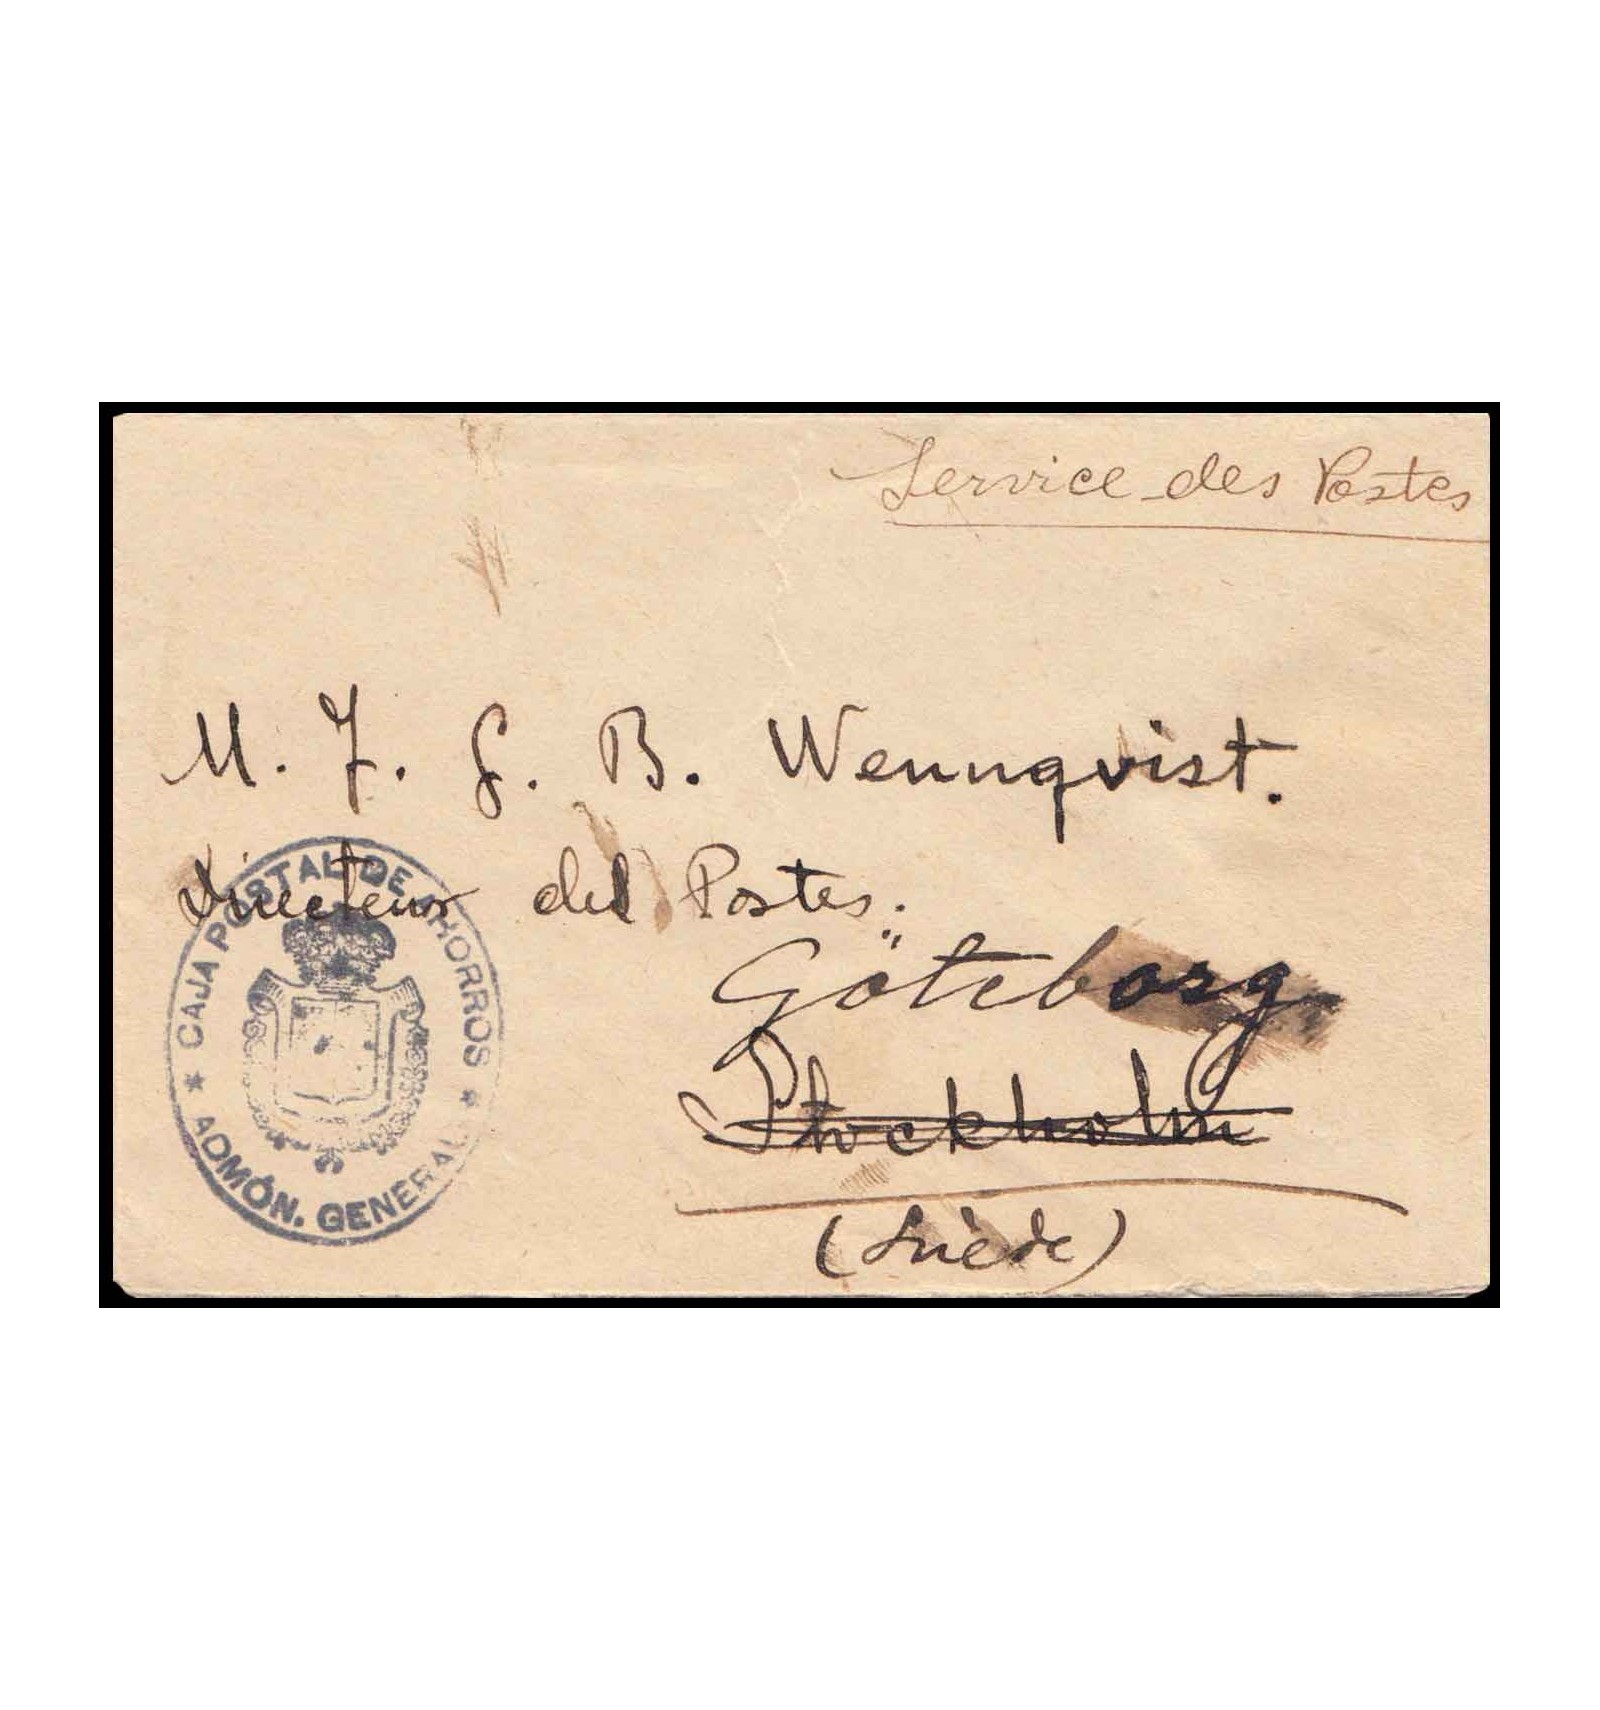 Service des Postes
M. J. G. B. Wennqvist.
Directeur des Postes.
Göteborg
Stockholm
(Suède)
CAJA POSTAL DE AHORROS
* ADMÓN. GENERAL *